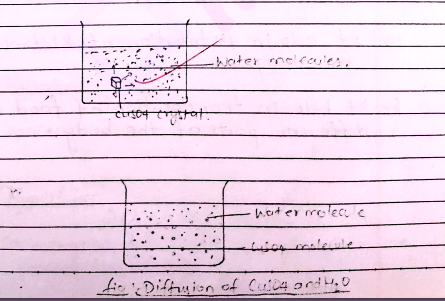 Water molecules.
CuSO4 crystal.
Water molecule
CuSO4 molecule
fig: Diffusion of CuSO4 and H2O